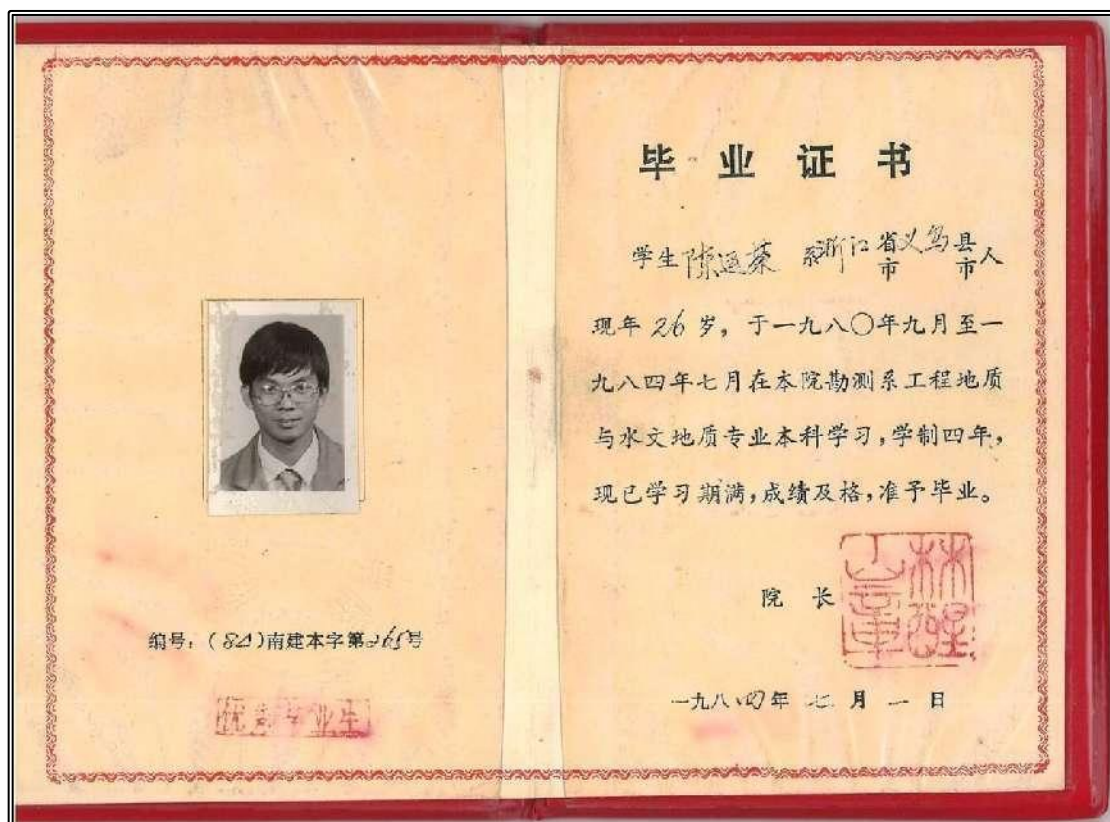 编号：（84）南建本字第265号
优秀毕业生
毕业证书
学生陈运荣 系浙江省市义乌县市人
现年26岁，于一九八〇年九月至一
九八四年七月在本院勘测系工程地质
与水文地质专业本科学习，学制四年，
现已学习期满，成绩及格，准予毕业。
院长
一九八四年七月一日